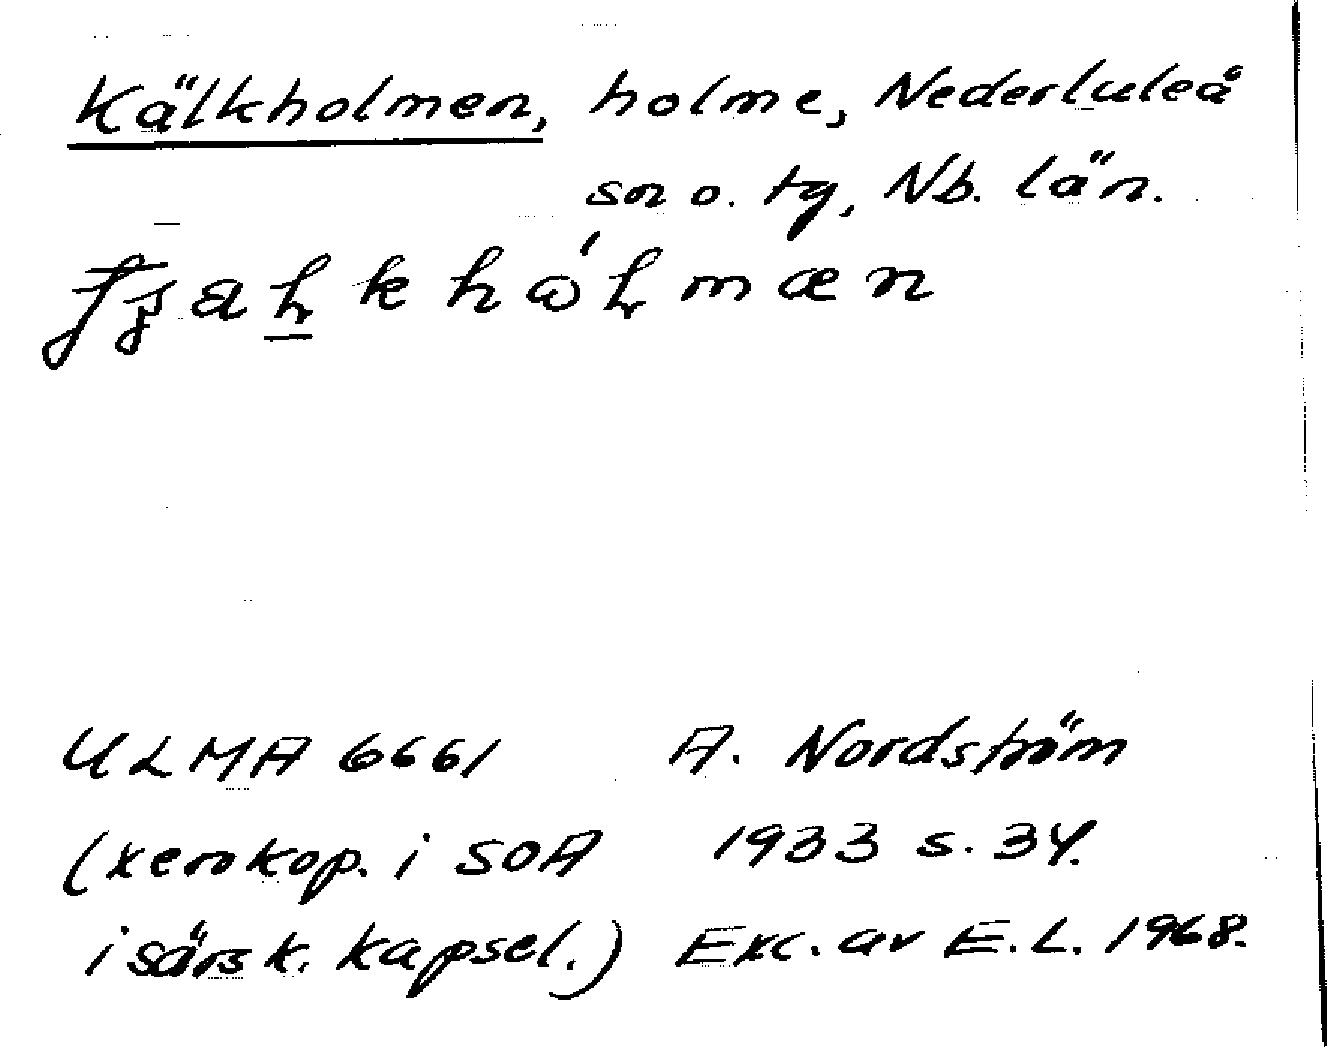 Kälkholmen, holme, Nederluleå
sn o. tg, Nb. län.
ULMA 6661 A. Nordström
(xerokop. i SOA 1933 s. 34.
i särsk. kapsel.) Exc. av E.L. 1968.